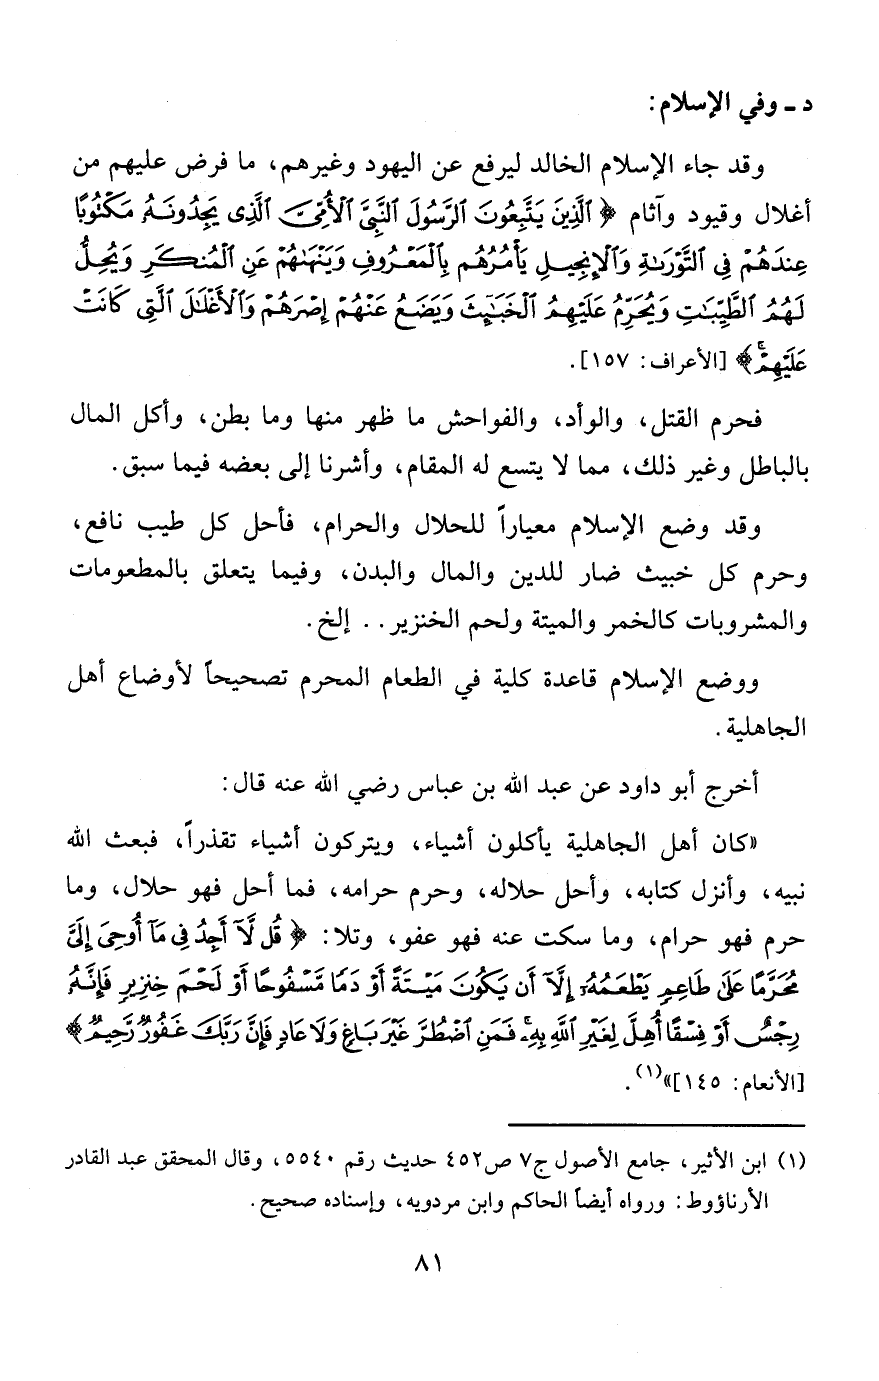 د ـ وفي الإسلام:
وقد جاء الإسلام الخالد ليرفع عن اليهود وغيرهم، ما فرض عليهم من
أغلال وقيود وآثام ﴿ ٱلَّذِينَ يَتَّبِعُونَ ٱلرَّسُولَ ٱلنَّبِىَّ ٱلْأُمِّىَّ ٱلَّذِى يَجِدُونَهُۥ مَكْتُوبًا
عِندَهُمْ فِى ٱلتَّوْرَىٰةِ وَٱلْإِنجِيلِ يَأْمُرُهُم بِٱلْمَعْرُوفِ وَيَنْهَىٰهُمْ عَنِ ٱلْمُنكَرِ وَيُحِلُّ
لَهُمُ ٱلطَّيِّبَٰتِ وَيُحَرِّمُ عَلَيْهِمُ ٱلْخَبَٰٓئِثَ وَيَضَعُ عَنْهُمْ إِصْرَهُمْ وَٱلْأَغْلَٰلَ ٱلَّتِى كَانَتْ
عَلَيْهِمْ ۚ﴾ [الأعراف: ١٥٧].
فحرم القتل، والوأد، والفواحش ما ظهر منها وما بطن، وأكل المال
بالباطل وغير ذلك، مما لا يتسع له المقام، وأشرنا إلى بعضه فيما سبق.
وقد وضع الإسلام معياراً للحلال والحرام، فأحل كل طيب نافع،
وحرم كل خبيث ضار للدين والمال والبدن، وفيما يتعلق بالمطعومات
والمشروبات كالخمر والميتة ولحم الخنزير.. إلخ.
ووضع الإسلام قاعدة كلية في الطعام المحرم تصحيحاً لأوضاع أهل
الجاهلية.
أخرج أبو داود عن عبد الله بن عباس رضي الله عنه قال:
«كان أهل الجاهلية يأكلون أشياء، ويتركون أشياء تقذراً، فبعث الله
نبيه، وأنزل كتابه، وأحل حلاله، وحرم حرامه، فما أحل فهو حلال، وما
حرم فهو حرام، وما سكت عنه فهو عفو، وتلا: ﴿ قُل لَّآ أَجِدُ فِى مَآ أُوحِىَ إِلَىَّ
مُحَرَّمًا عَلَىٰ طَاعِمٍ يَطْعَمُهُۥٓ إِلَّآ أَن يَكُونَ مَيْتَةً أَوْ دَمًا مَّسْفُوحًا أَوْ لَحْمَ خِنزِيرٍ فَإِنَّهُۥ
رِجْسٌ أَوْ فِسْقًا أُهِلَّ لِغَيْرِ ٱللَّهِ بِهِۦ ۚ فَمَنِ ٱضْطُرَّ غَيْرَ بَاغٍ وَلَا عَادٍ فَإِنَّ رَبَّكَ غَفُورٌ رَّحِيمٌ ﴾
[الأنعام: ١٤٥]»(١).
(١) ابن الأثير، جامع الأصول ج٧ ص٤٥٢ حديث رقم ٥٥٤٠، وقال المحقق عبد القادر
الأرناؤوط: ورواه أيضاً الحاكم وابن مردويه، وإسناده صحيح.
٨١